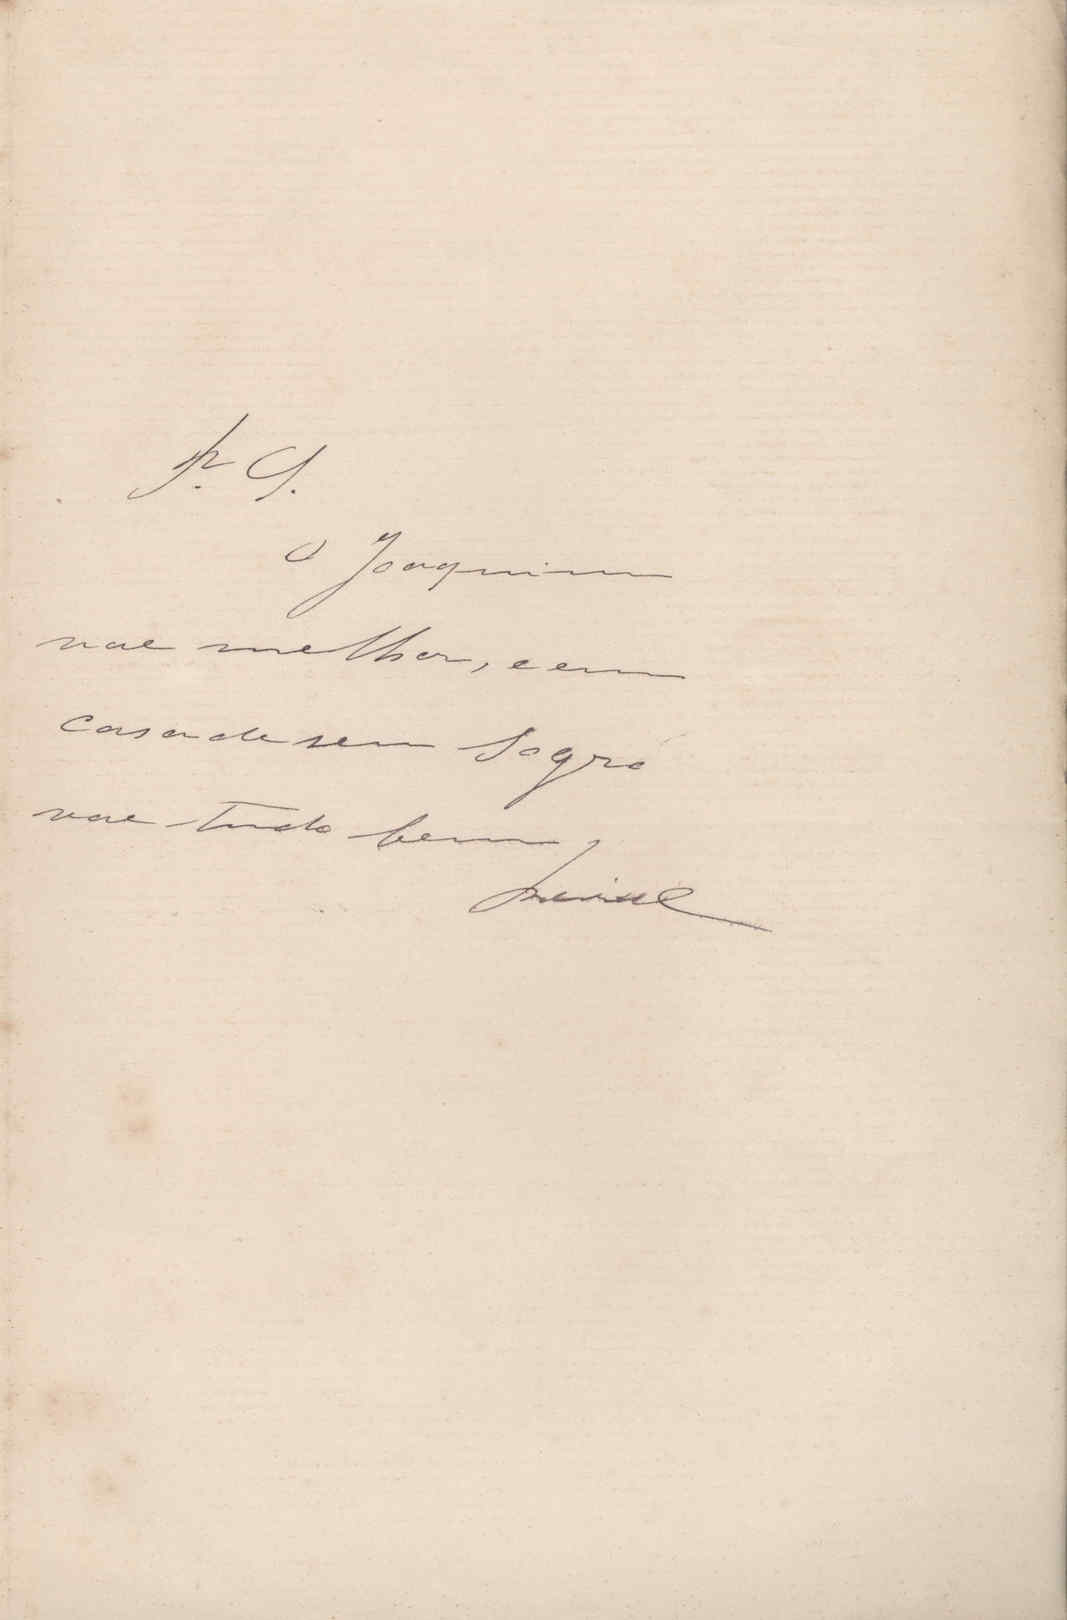 P. S.
O Joaquim
vae melhor, e em
casa de seu Sogro
vae tudo bem